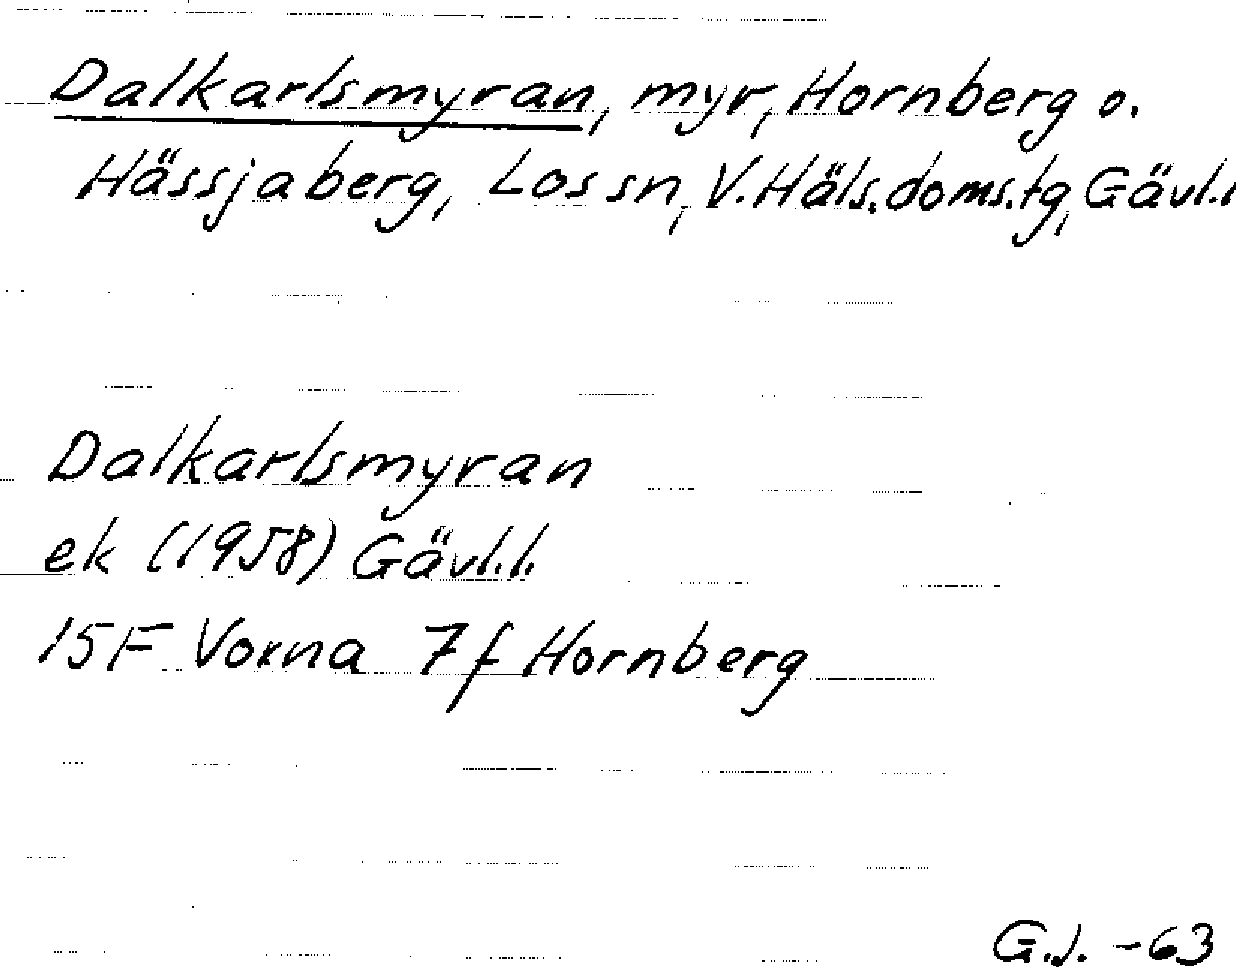 Dalkarlsmyran, myr, Hornberg o.
Hässjaberg, Los sn, V. Häls. doms.tg, Gävl.l
Dalkarlsmyran
ek (1958) Gävl.l.
15F Voxna 7f Hornberg
G.J. -63